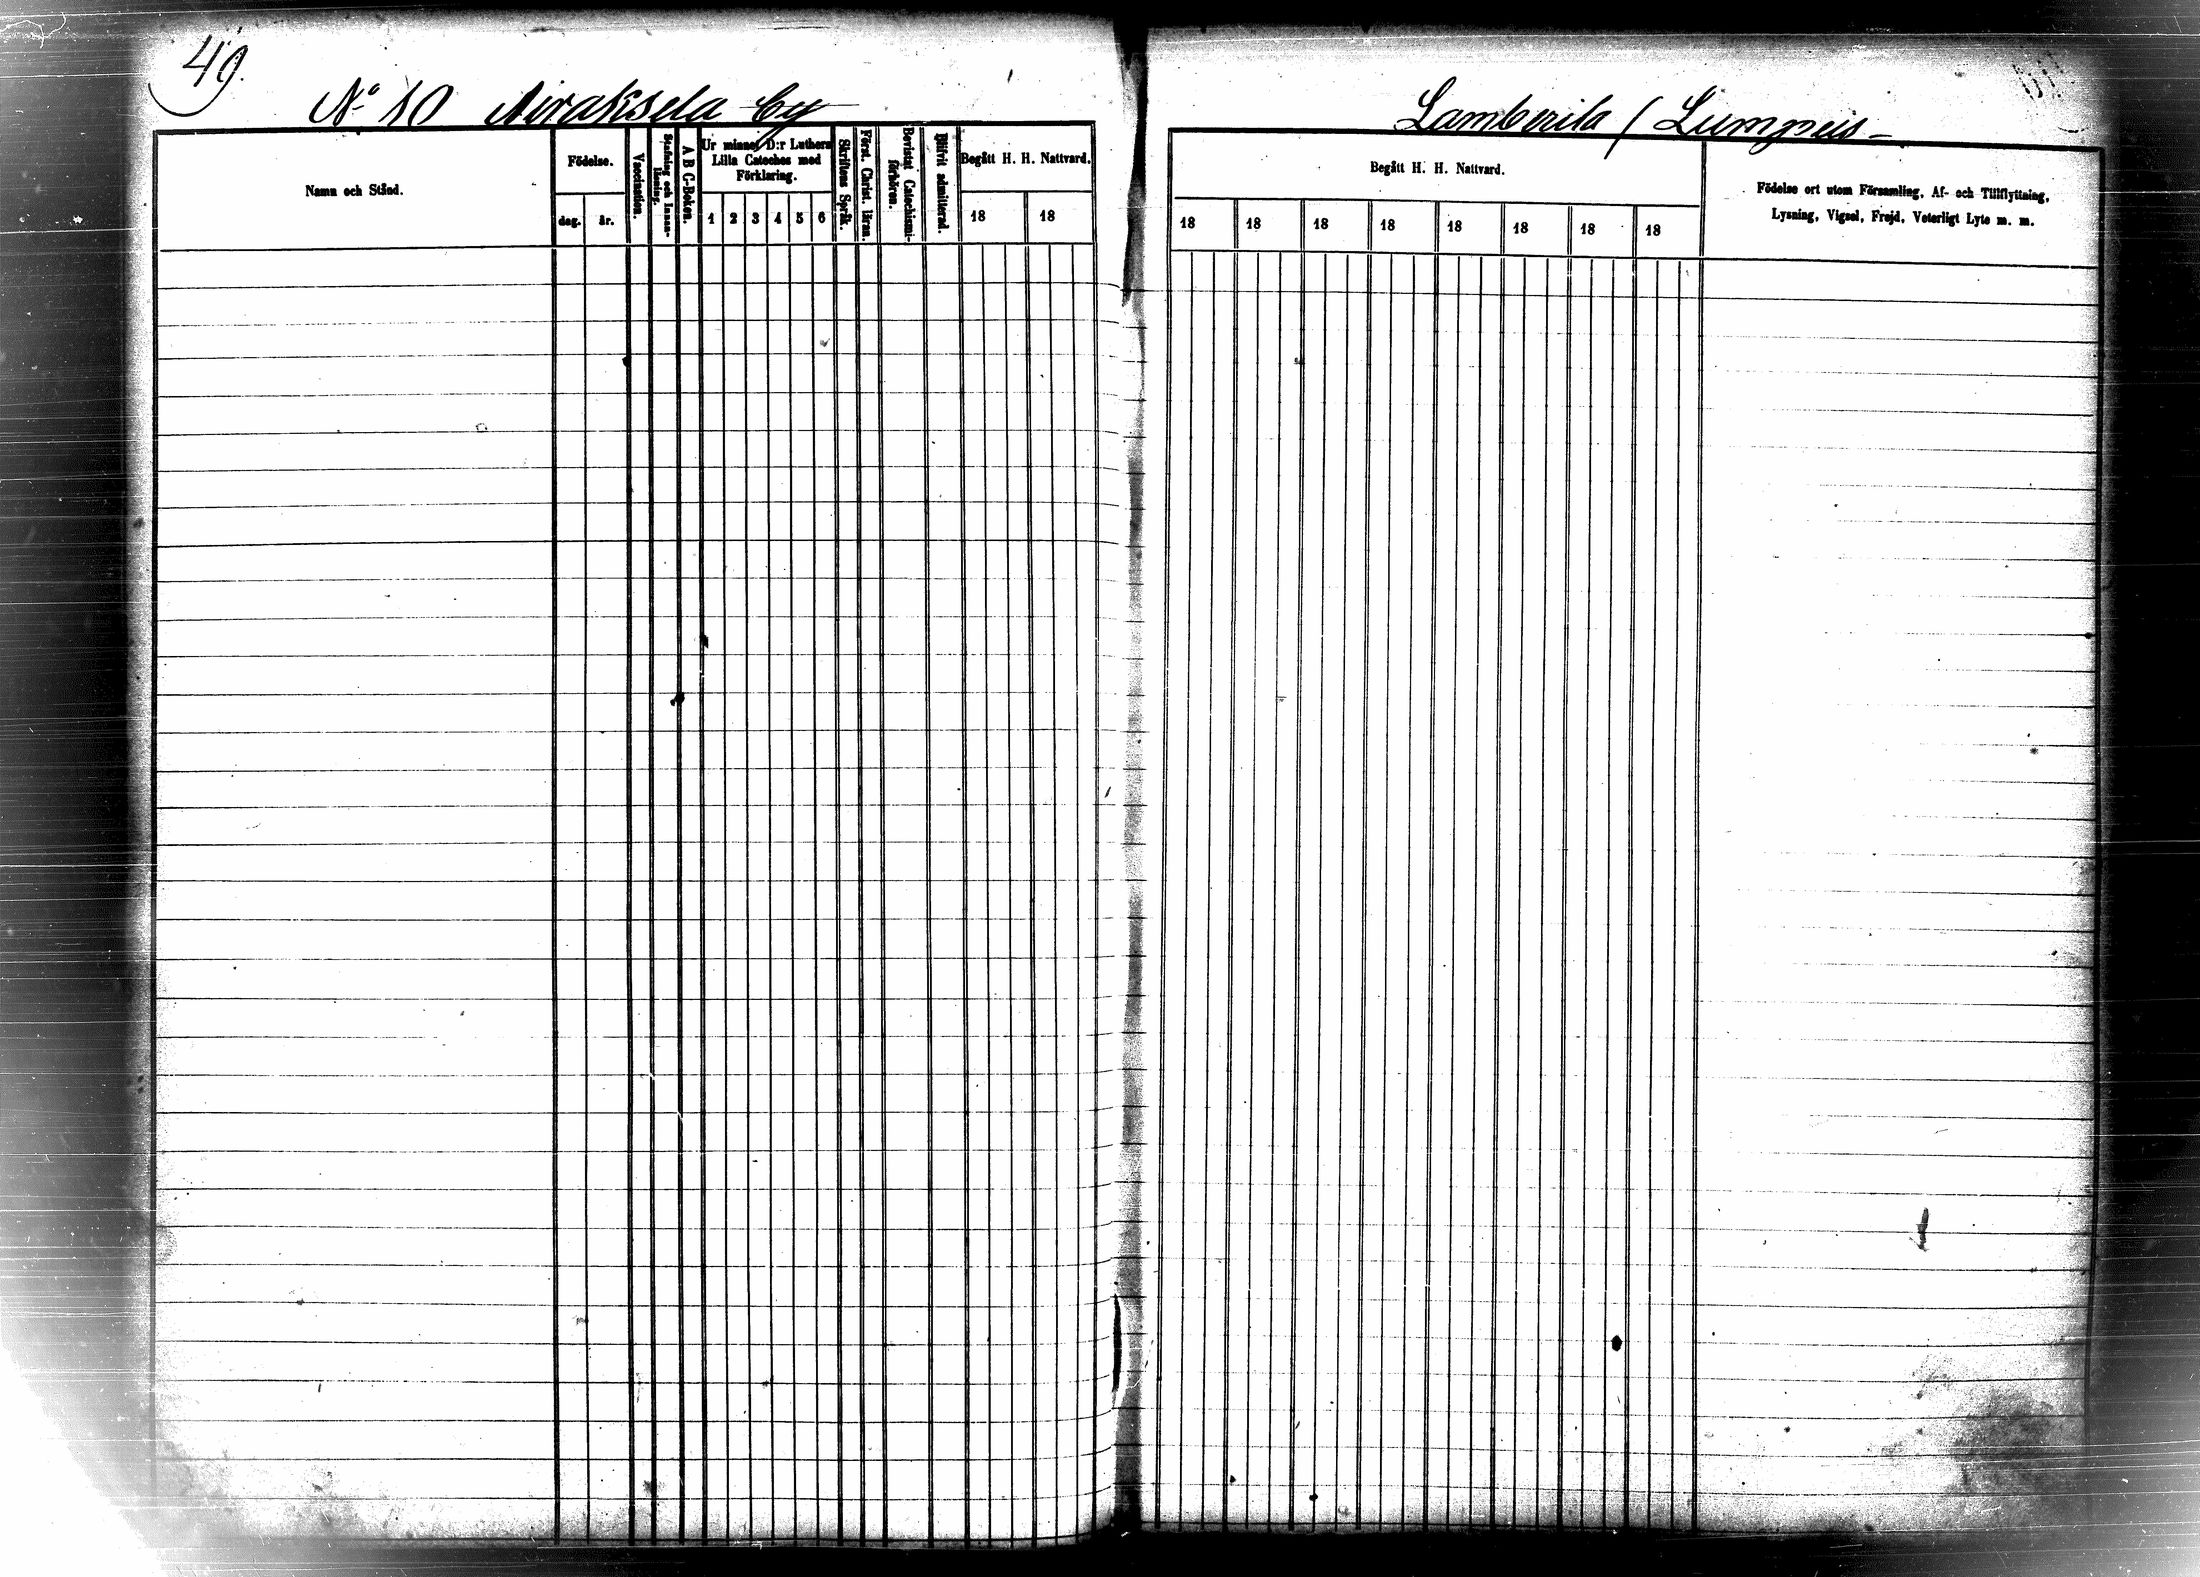 49.
No 10 Airaksela by
Lamberila / Lumpeis
Namn och Stånd.
Födelse.
dag.
år.
Vaccination.
Stafning och Innanläsning.
A B C-Boken.
Ur minnet D:r Luthers
Lilla Cateches med
Förklaring.
1 2 3 4 5 6
Skriftens Språk.
Först. Christ. läran.
Bevistat Catechismi-
förhören.
Blifvit admitterad.
Begått H. H. Nattvard.
18 18
Begått H. H. Nattvard.
18 18 18 18 18 18 18 18
Födelse ort utom Församling, Af- och Tillflyttning,
Lysning, Vigsel, Frejd, Veterligt Lyte m. m.